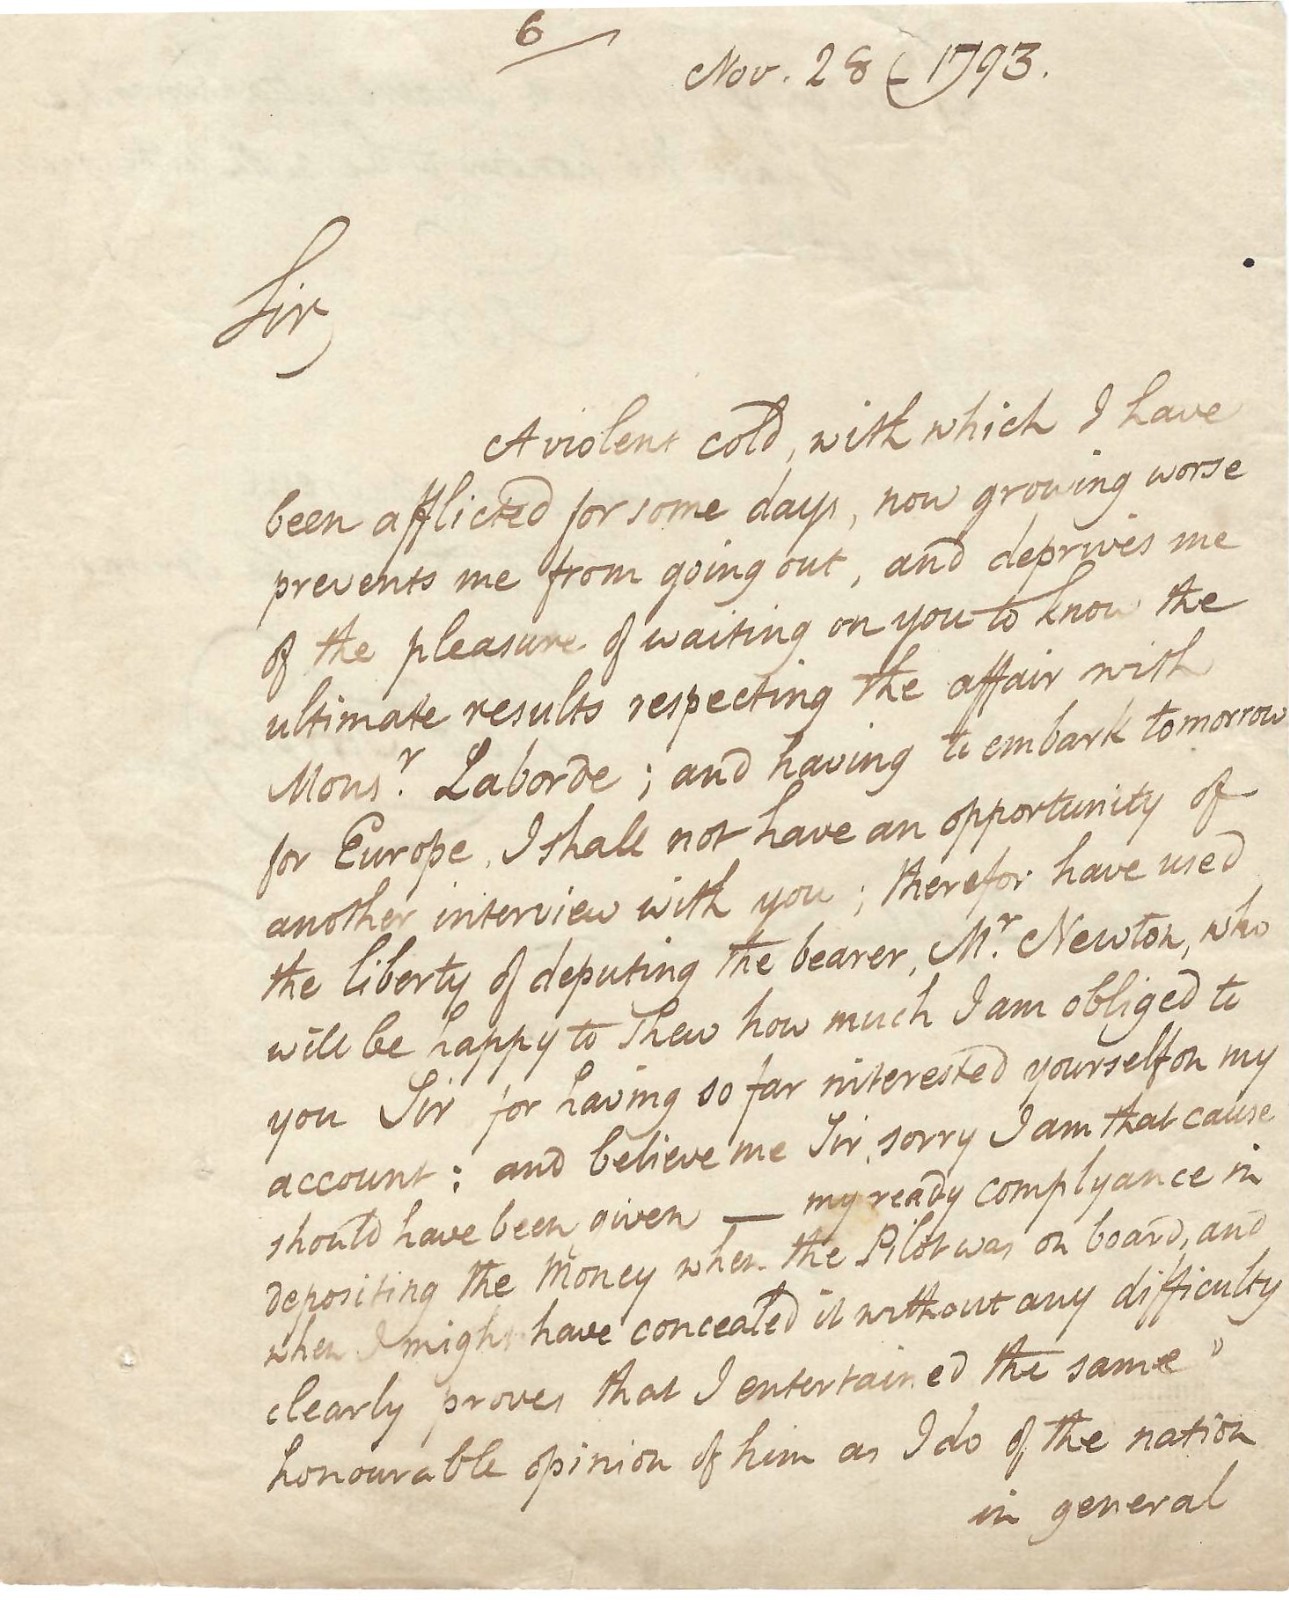 6
Nov. 28 1793.
Sir
A violent cold, with which I have
been afflicted for some days, now growing worse
prevents me from going out, and deprives me
of the pleasure of waiting on you to know the
ultimate results respecting the affair with
Monsr. Laborde; and having to embark tomorrow
for Europe, I shall not have an opportunity of
another interview with you; therefor have used
the liberty of deputing the bearer, Mr. Newton, who
will be happy to shew how much I am obliged to
you Sir for having so far interested yourself on my
account: and believe me Sir, sorry I am that cause
should have been given — my ready complyance in
depositing the Money when the Pilot was on board, and
when I might have concealed it without any difficulty
clearly proves that I entertained the same "
honourable opinion of him as I do of the nation
in general